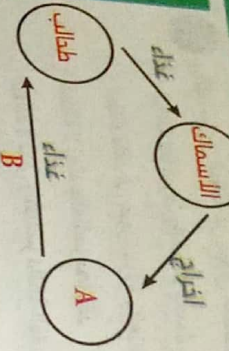 طحالب
غذاء
الأسماك
اخراج
A
غذاء
B